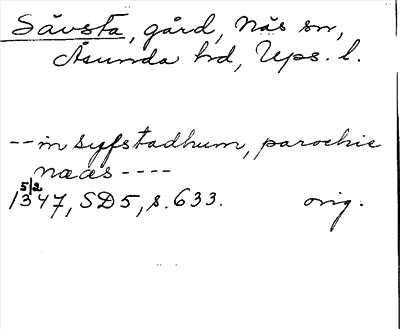 Sävsta, gård, Näs sn,
Åsunda hd, Upps. l.
-- in syfstadhum, parochie
næs ----
5/2
1347, SD5, s. 633. orig.